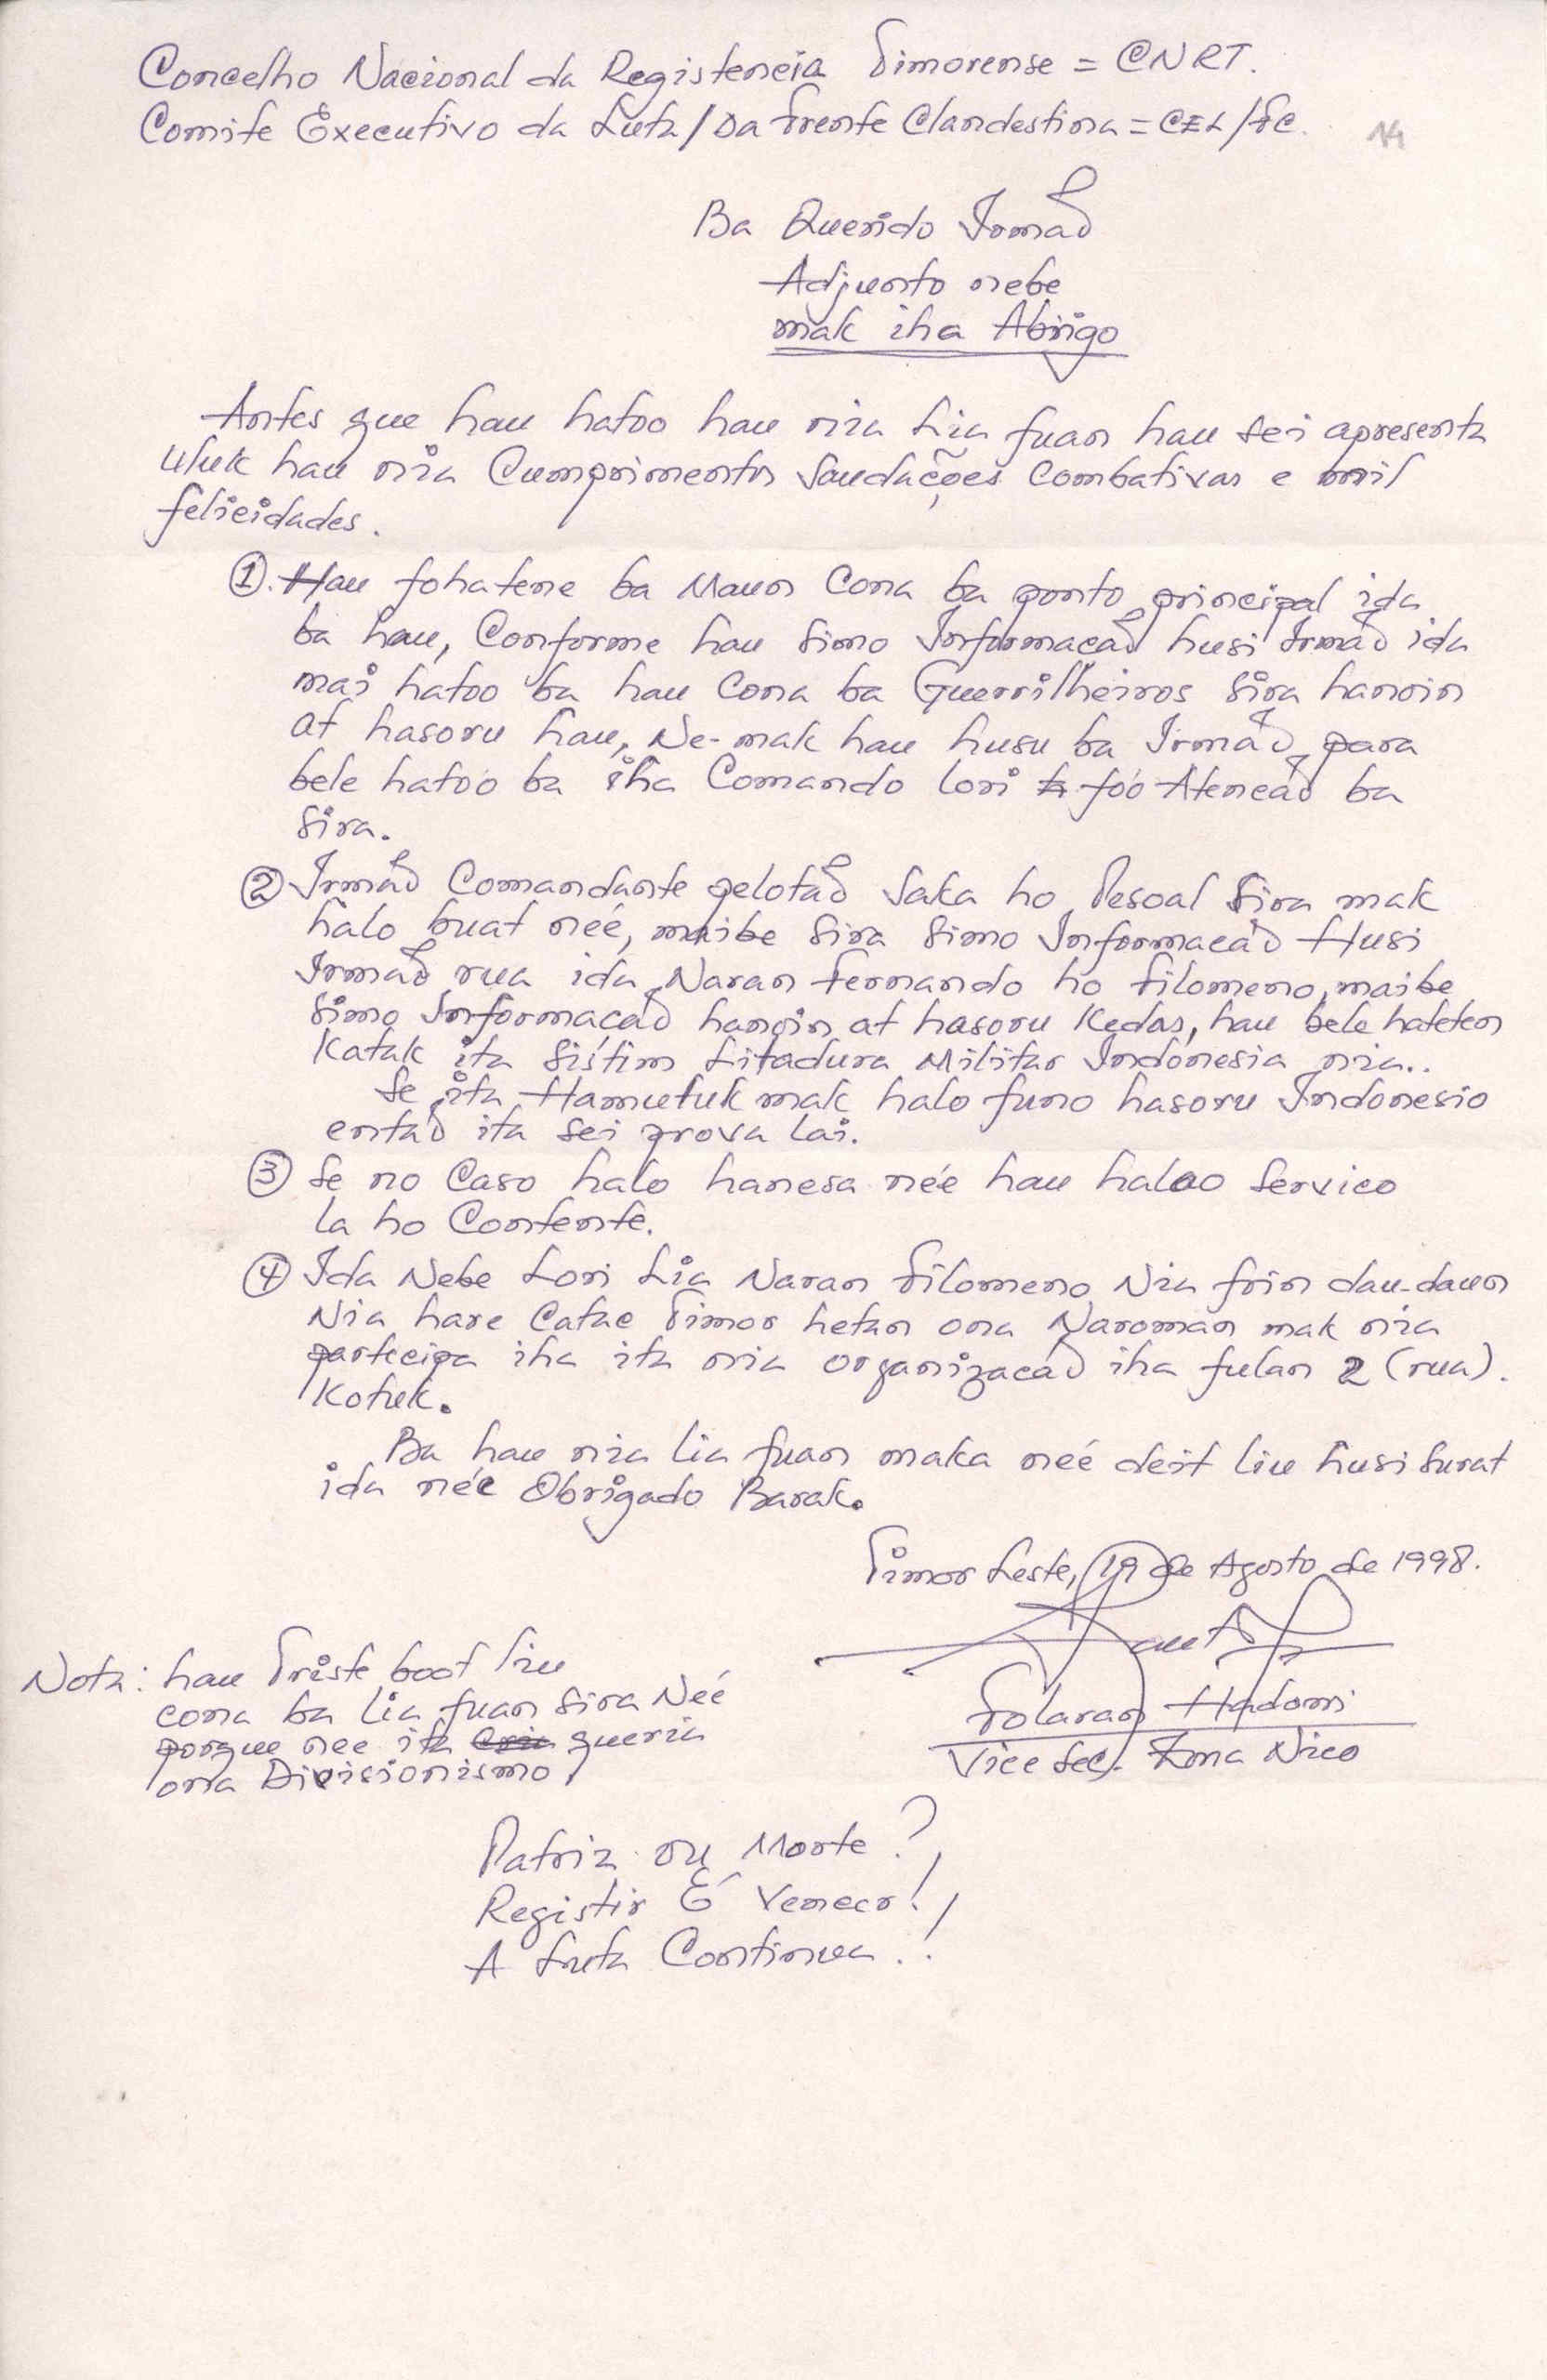 Concelho Nacional da Registencia Timorense = CNRT.
Comite Executivo da Luta/Da Frente Clandestina = CEL/FC.
14
Ba Querido Irmaõ
Adjunto nebe
mak iha Abrigo
Antes que hau hatoo hau nia Lia fuan hau sei apresenta
Uluk hau nia Cumprimentos Saudações Combativas e mil
felicidades.
①. Hau fohatene ba Maun Cona ba ponto principal ida
ba hau, Conforme hau Simo Informacaõ husi Irmaõ ida
mai hatoo ba hau Cona ba Guerrilheiros Sira hanoin
at hasoru hau, Ne-mak hau husu ba Irmaõ, para
bele hatóo ba iha Comando lori fóo Atencaõ ba
Sira.
② Irmaõ Comandante pelotaõ Saka ho Pesoal Sira mak
halo buat neé, maibe Sira Simo Informacaõ Husi
Irmaõ rua ida Naran Fernando ho Filomeno, maibe
Simo Informaçaõ hanoin at hasoru Kedas, hau bele hateten
Katak ita Sistim Litadura Militar Indonesia nia..
Se ita Hamutuk mak halo funo hasoru Indonesio
entaõ ita Sei prova Lai.
③ Se no Caso halo hanesa neé hau halao Servico
La ho Contente.
④ Ida Nebe Lori Lia Naran Filomeno Nia foin dau-daun
Nia hare Catac Timor hetan ona Naroman mak nia
partecipa iha ita nia organizacaõ iha fulan 2 (rua).
Kotuk.
Ba hau nia lia fuan maka neé deit liu husi Surat
ida neé Obrigado Barak.
Timor Leste, 19 de Agosto de 1998.
Folaran Hadomi
Vice Sec. Zona Nico
Nota: hau Triste boot liu
cona ba lia fuan Sira Neé
porque nee ita queria
ona Divisionismo
Patria ou Morte?,
Registir É Vencer!,
A Luta Continua.!